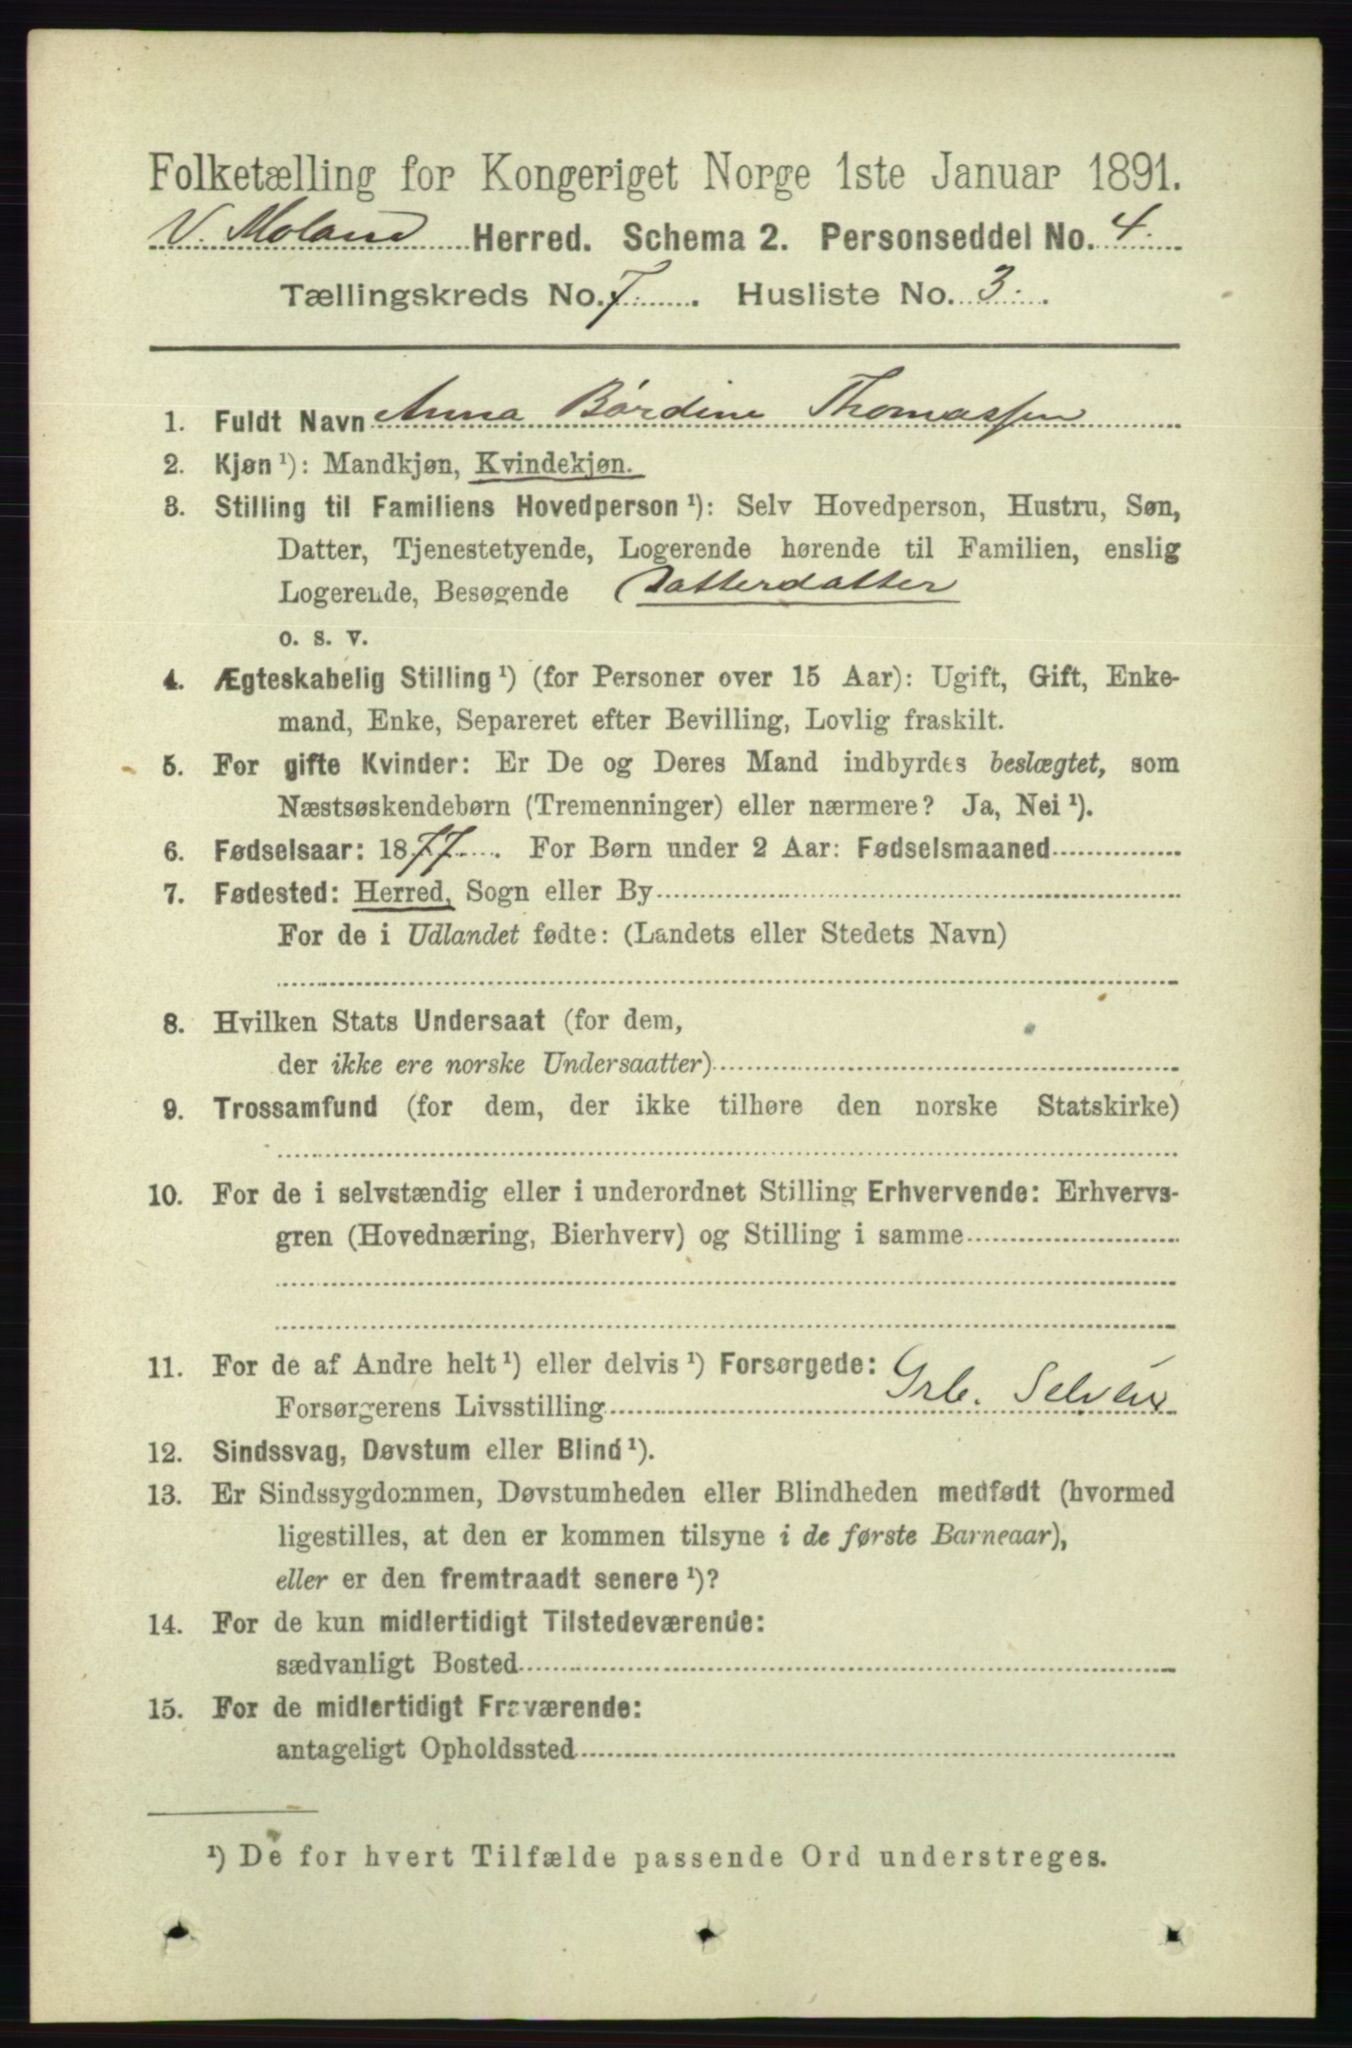 Folketælling for Kongeriget Norge 1ste Januar 1891.
V. Moland Herred. Schema 2. Personseddel No. 4.
Tællingskreds No. 7. Husliste No. 3.
1. Fuldt Navn Anna Bórdine Thomassen
2. Kjøn ¹): Mandkjøn, Kvindekjøn.
3. Stilling til Familiens Hovedperson ¹): Selv Hovedperson, Hustru, Søn,
Datter, Tjenestetyende, Logerende hørende til Familien, enslig
Logerende, Besøgende Datterdatter
o. s. v.
4. Ægteskabelig Stilling ¹) (for Personer over 15 Aar): Ugift, Gift, Enke-
mand, Enke, Separeret efter Bevilling, Lovlig fraskilt.
5. For gifte Kvinder: Er De og Deres Mand indbyrdes beslægtet, som
Næstsøskendebørn (Tremenninger) eller nærmere? Ja, Nei ¹).
6. Fødselsaar: 1877. For Børn under 2 Aar: Fødselsmaaned
7. Fødested: Herred, Sogn eller By
For de i Udlandet fødte: (Landets eller Stedets Navn)
8. Hvilken Stats Undersaat (for dem,
der ikke ere norske Undersaatter)
9. Trossamfund (for dem, der ikke tilhøre den norske Statskirke)
10. For de i selvstændig eller i underordnet Stilling Erhvervende: Erhvervs-
gren (Hovednæring, Bierhverv) og Stilling i samme
11. For de af Andre helt ¹) eller delvis ¹) Forsørgede:
Forsørgerens Livsstilling Grb. Selveier
12. Sindssvag, Døvstum eller Blind ¹).
13. Er Sindssygdommen, Døvstumheden eller Blindheden medfødt (hvormed
ligestilles, at den er kommen tilsyne i de første Barneaar),
eller er den fremtraadt senere ¹)?
14. For de kun midlertidigt Tilstedeværende:
sædvanligt Bosted
15. For de midlertidigt Fraværende:
antageligt Opholdssted
¹) De for hvert Tilfælde passende Ord understreges.